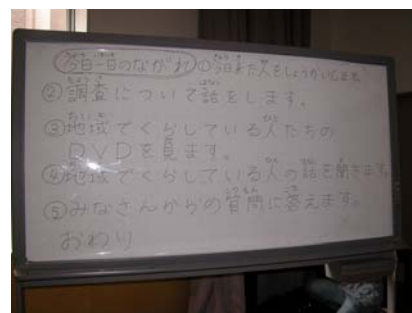 今日一日のながれ ①今日来た人をしょうかいします
②調査について話をします。
③地域でくらしている人たちの
DVDを見ます。
④地域でくらしている人の話を聞きます。
⑤みなさんからの質問に答えます。
おわり